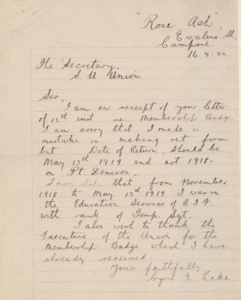 "Rose Ash"
Evaline St
Campsie
16.4.22
The Secretary,
S. U. Union.
Sir,
I am in receipt of your letter
of 12th inst. re Membership Badge.
I am sorry that I made a
mistake in making out form
but Date of Return, should be
May 13th 1919 and not 1918
on Pt. Denison.
I may state that from November
1918 to May 12th 1919 I was in
the Education Services of A.I.F
with rank of Temp. Sgt.
I also wish to thank the
Executive of the Union for the
Membership Badge which I have
already received.
Yours faithfully
E. Lake